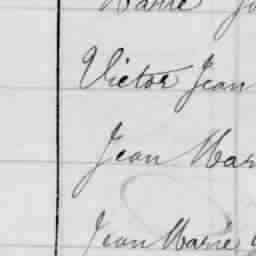 Marie
Victor Jean
Jean Mar
Jean Marie